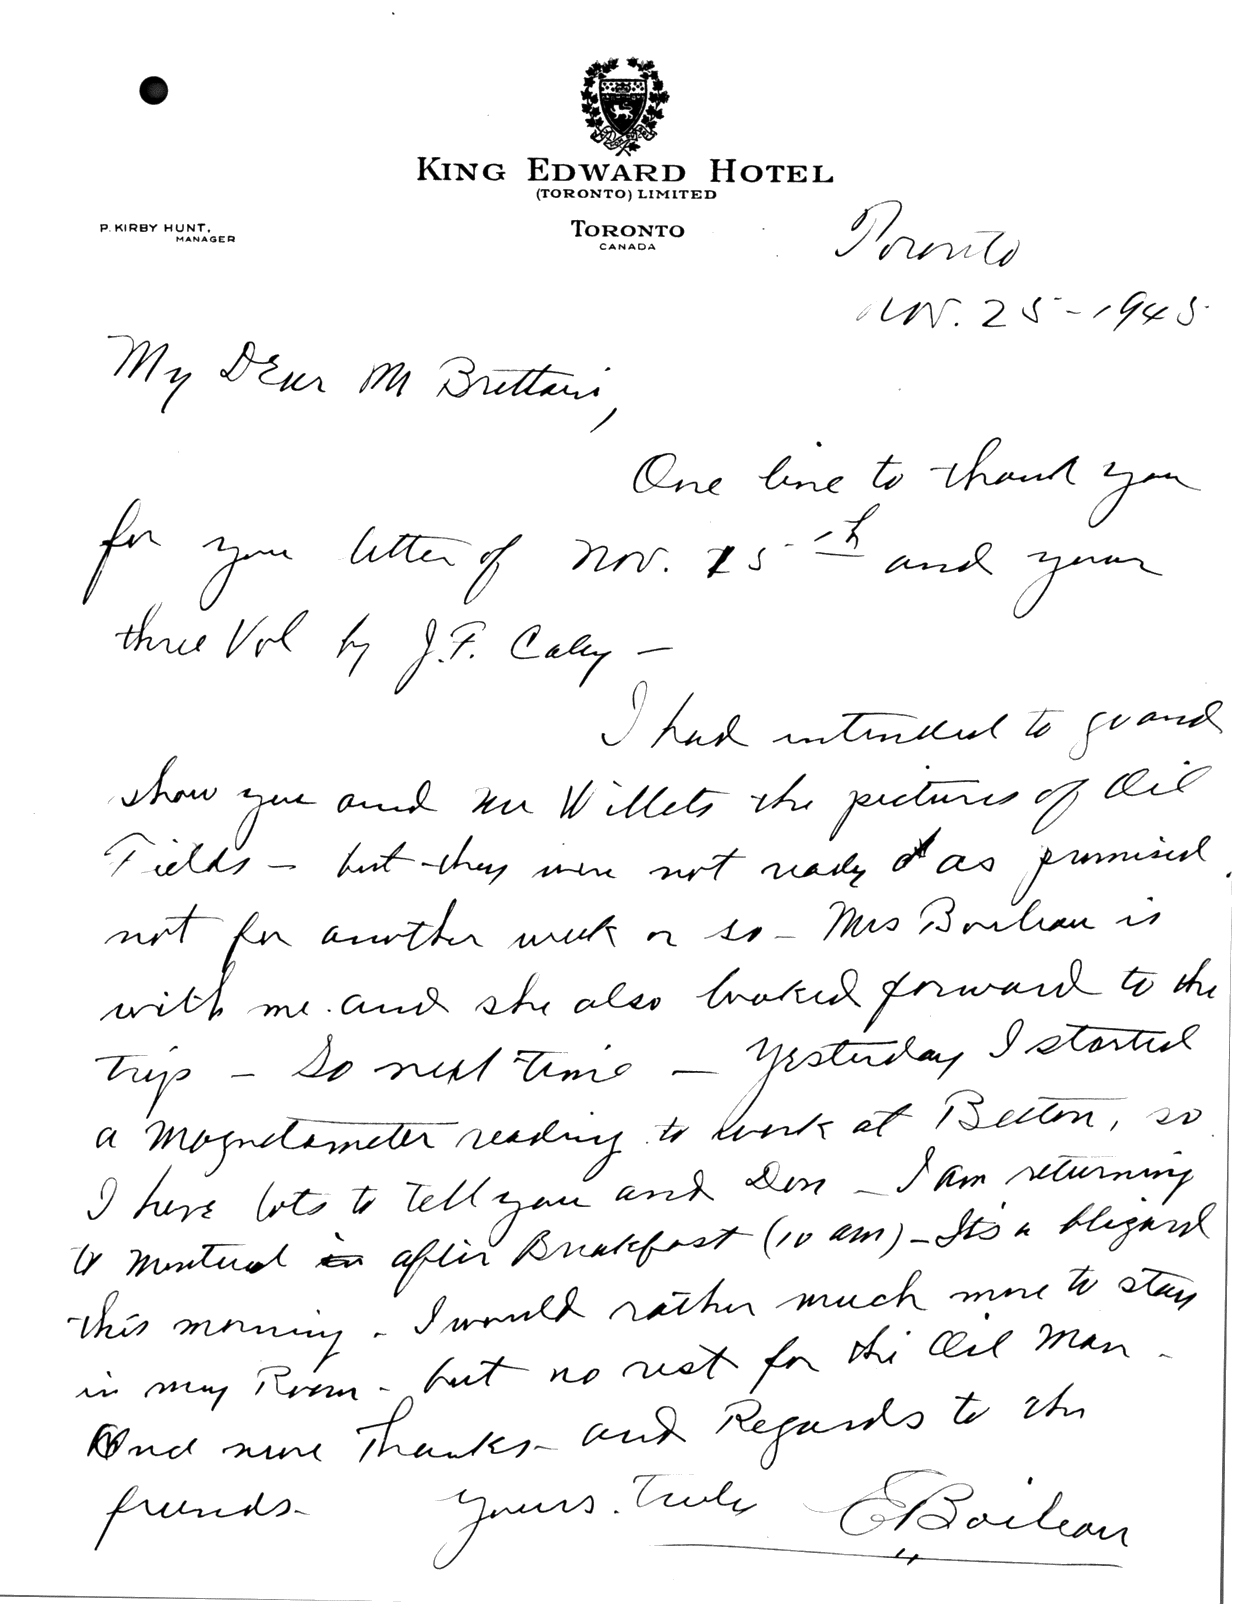 KING EDWARD HOTEL
(TORONTO) LIMITED
P. KIRBY HUNT,
MANAGER
TORONTO
CANADA
Toronto
Nov. 25 - 1945
My Dear Mr Brittain,
One line to thank you
for your letter of Nov. 15th and your
three Vol by J.F. Caley -
I had intended to go and
show you and Mr Willets the pictures of Oil
Fields - but they were not ready as promised
not for another week or so - Mrs Boileau is
with me and she also looked forward to the
trip - So next time - Yesterday I started
a Magnetometer reading to work at Beeton, so
I have lots to tell you and Don - I am returning
to Montreal after Breakfast (10 am) - Its a blizard
this morning - I would rather much more to stay
in my Room - but no rest for the Oil Man -
And more Thanks - and Regards to the
friends - Yours Truly E Boileau